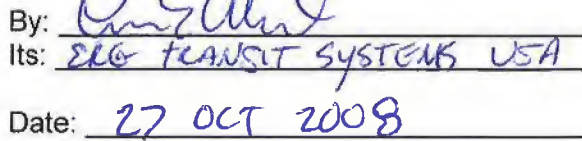 By:
Its: ERG TRANSIT SYSTEMS USA
Date: 27 OCT 2008